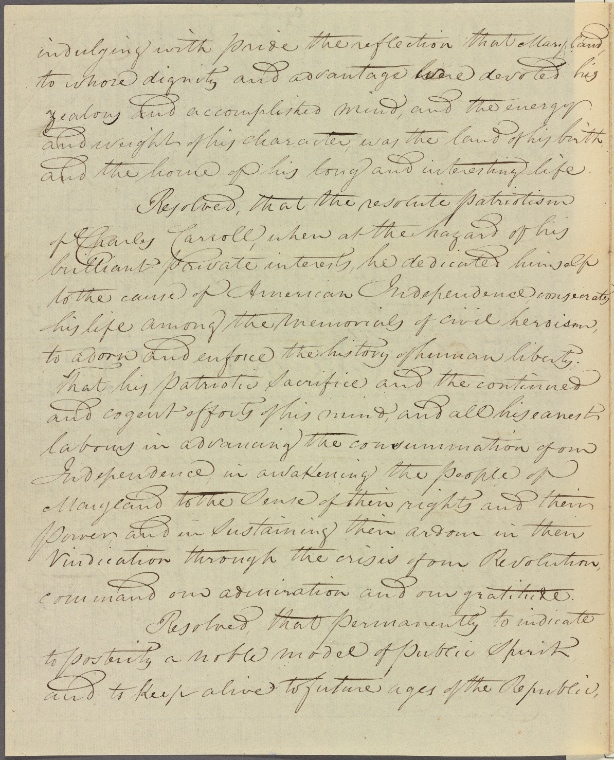 indulging with pride the reflection that Maryland,
to whose dignity and advantage were devoted his
zealous and accomplished mind, and the energy
and weight of his character was the land of his birth
and the home of his long and interesting life.
Resolved, that the resolute Patriotism
of Charles Carroll, when at the hazard of his
brilliant private interests, he dedicated himself
to the cause of American Independence consecrates
his life among the memorials of civil heroism,
to adorn and enforce the history of human liberty.
That his Patriotic Sacrifice and the continued
and cogent efforts of his mind, and all his eanest
labours in advancing the consummation of our
Independence in awakening the People of
Maryland to the Sense of their rights and their
Power and in Sustaining their ardour in their
Vindication through the crisis of our Revolution
command our admiration and our gratitude.
Resolved that permanently to indicate
to posterity a noble model of Public Spirit
and to keep alive to future ages of the Republic,